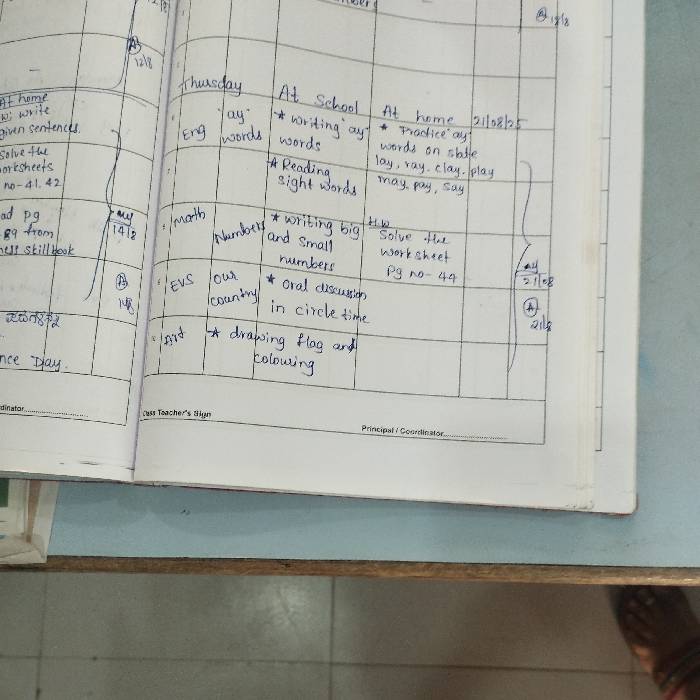 12/8
At home
write
given sentences.
Solve the
worksheets
no-41.42
ad pg
89 from
ness skillbook
14/8
14/8
nce Day.
dinator
12/8
Thursday
At School
At home
21/08/25
Eng
"ay"
words
* writing "ay"
words
* Practice "ay"
words on slate
lay, ray, clay, play
may, pay, say
* Reading
sight words
math
Numbers
* writing big
and small
numbers
H.W
Solve the
worksheet
Pg no- 44
21/08
EVS
our
country
* oral discussion
in circle time
21/8
Art
* drawing flag and
colouring
Class Teacher's Sign
Principal / Coordinator